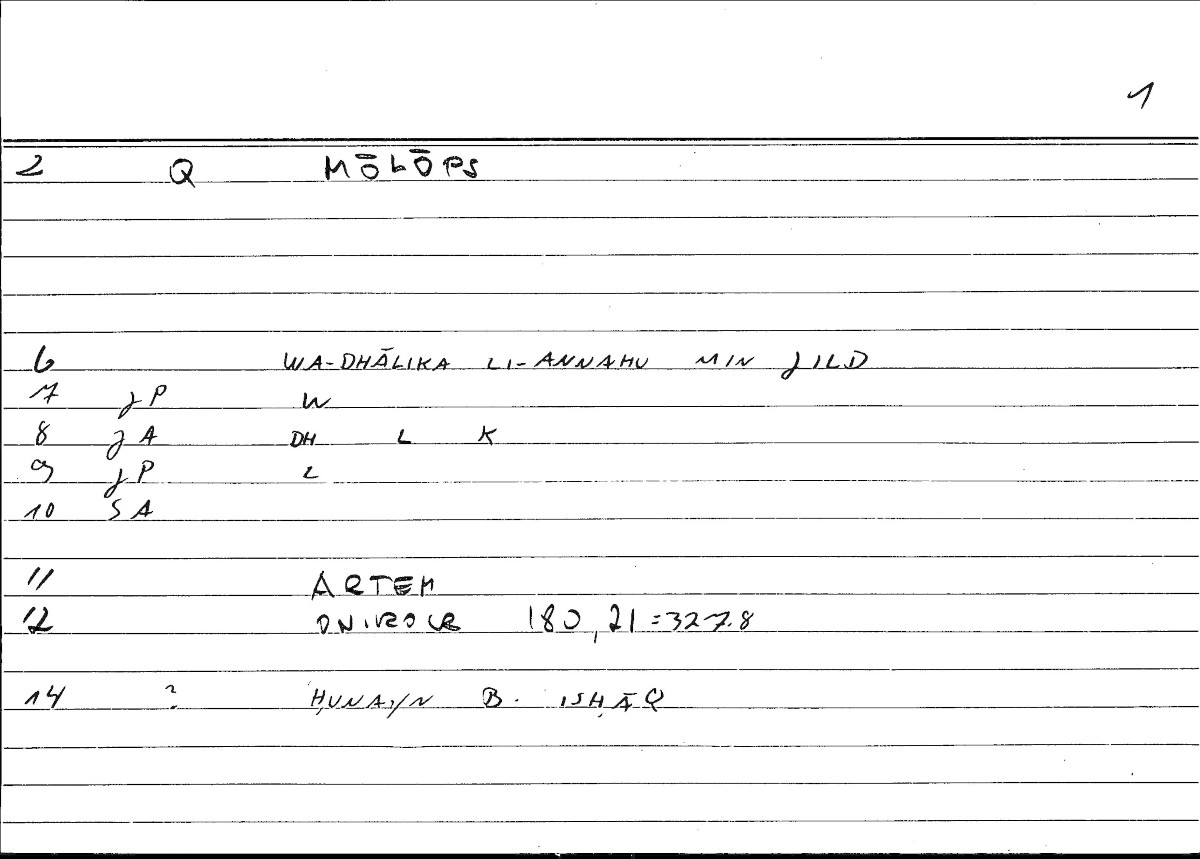 1
2 Q MŌLŌPS
6 WA-DHĀLIKA LI-ANNAHU MIN JILD
7 JP W
8 JA DH L K
9 JP L
10 SA
11 ARTEM
12 ONIROCR 180,21=327.8
14 ? ḤUNAYN B. ISḤĀQ